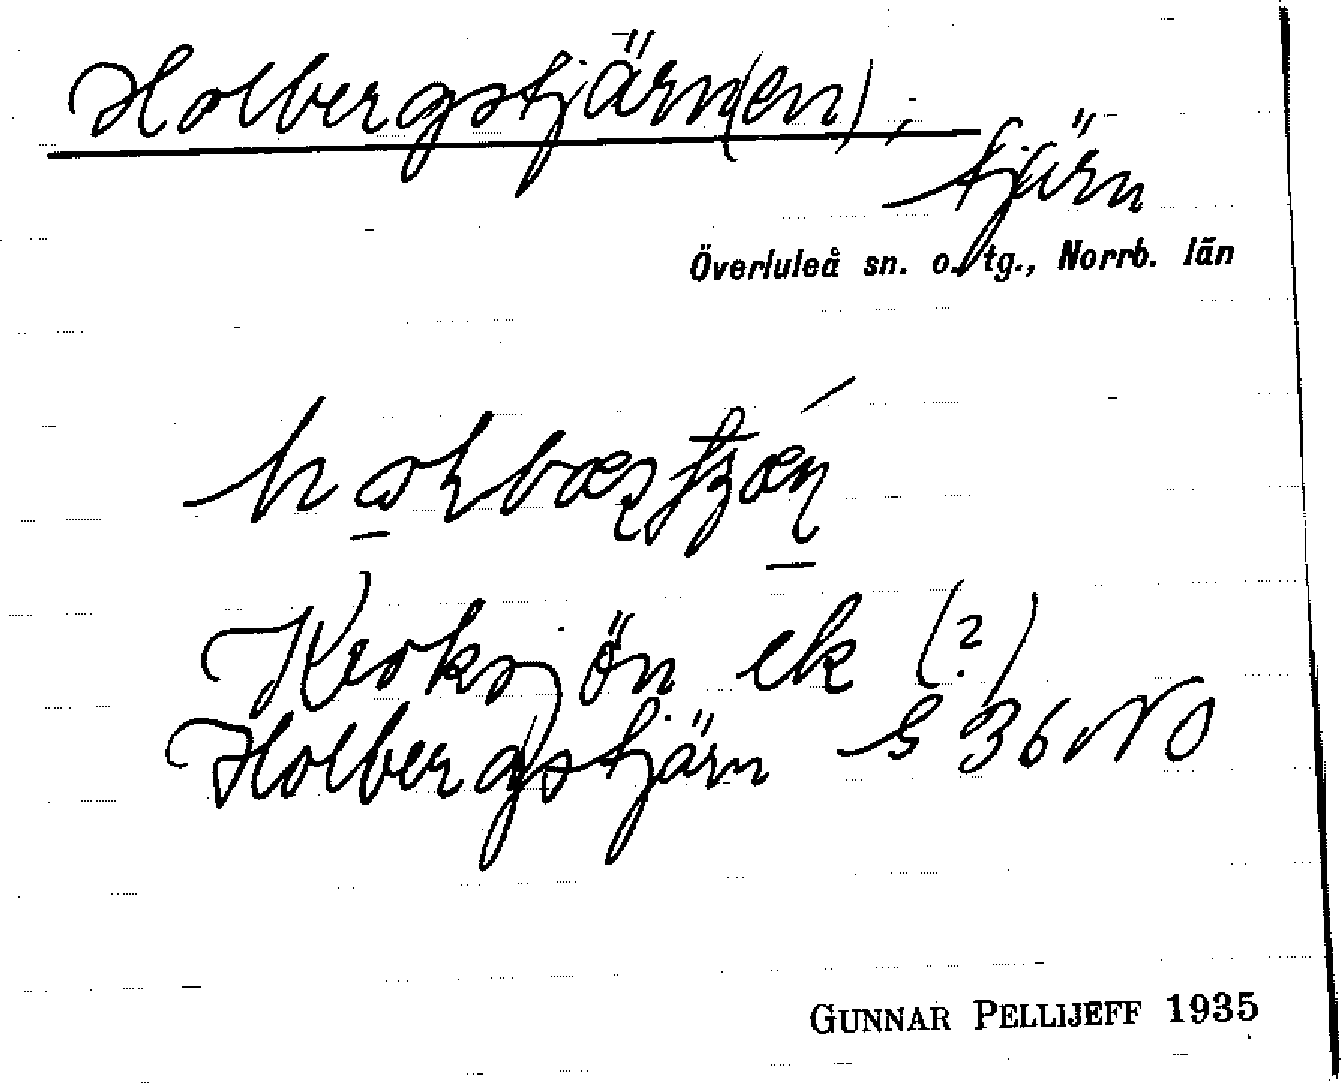 Holbergstjärn(en),
tjärn
Överluleå sn. o. tg., Norrb. län
Kroksjön ek (?)
Holbergstjärn S 36 NO
GUNNAR PELLIJEFF 1935